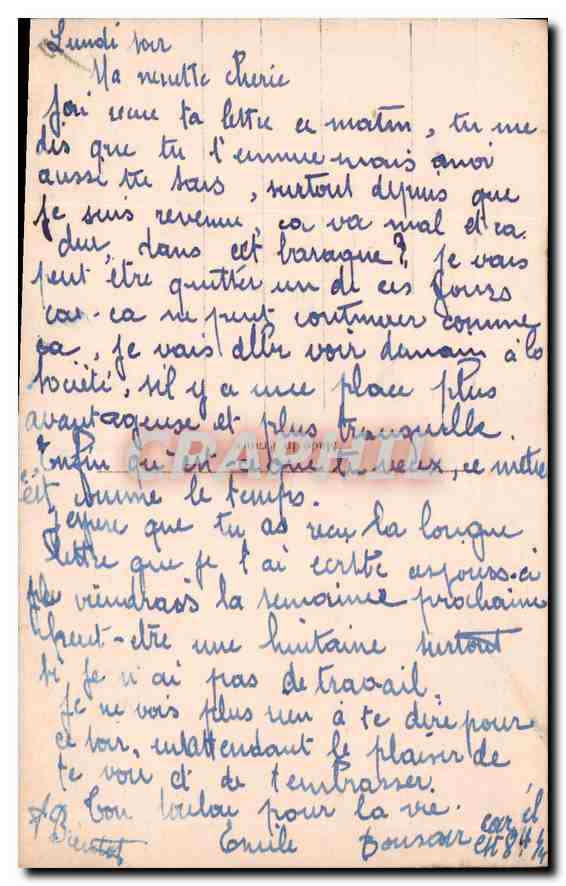 Lundi soir
Ma nenette cherie
J'ai recue ta lettre ce matin, tu me
dis que tu t'ennuie mais moi
aussi tu sais, surtout depuis que
je suis revenue, ca va mal et ca
dur, dans cet baraque? je vais
peut être quitter un de ces jours
car ca ne peut continuer comme
ca, je vais aller voir demain à la
société, s'il y a une place plus
avantageuse et plus tranquille
Enfin qu'est ce que tu veux, ce métier
est comme le temps.
J'espere que tu as recu la longue
lettre que je t'ai ecrite ces jours-ci
je viendrais la semaine prochaine
peut-etre une huitaine surtout
si je n'ai pas de travail.
Je ne vois plus rien à te dire pour
ce soir, en attendant le plaisir de
te voir et de t'embrasser.
Ton loulou pour la vie.
A Bientot
Emile Bonsoir car il
est 8 H 1/4
CRAPHIL